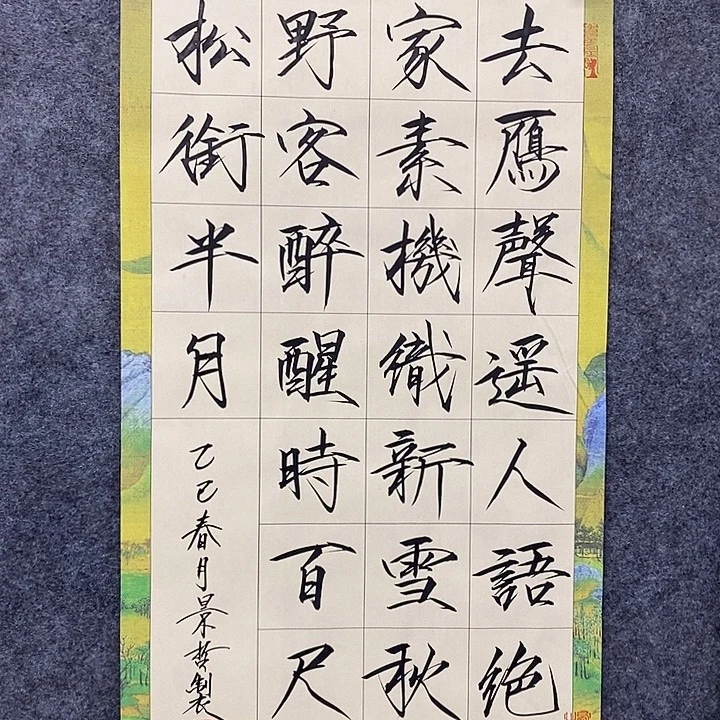 去鴈聲遥人語絕
家素機織新雪秋
野客醉醒時百尺
松銜半月
乙巳春月景哲製